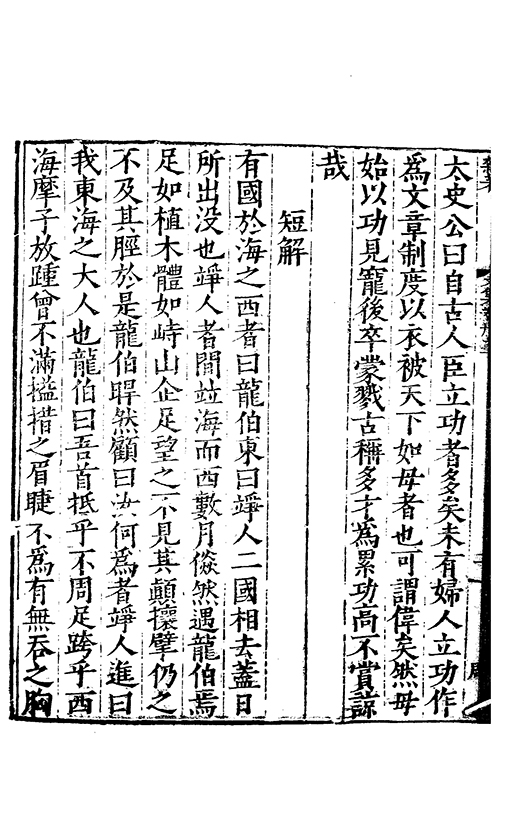 太史公曰自古人臣立功者多矣未有婦人立功作
爲文章制度以衣被天下如毋者也可謂偉矣然毋
始以功見寵後卒蒙戮古稱多才爲累功高不賞諒
哉
短解
有國於海之西者曰龍伯東曰竫人二國相去蓋日
所出没也竫人者閒竝海而西數月倐然遇龍伯焉
足如植木體如峙山企足望之不見其顛攘擘仍之
不及其脛於是龍伯睅然顧曰汝何爲者竫人進曰
我東海之大人也龍伯曰吾首抵乎不周足跨乎西
海摩子放踵曾不滿搤措之眉睫不爲有無吞之胸